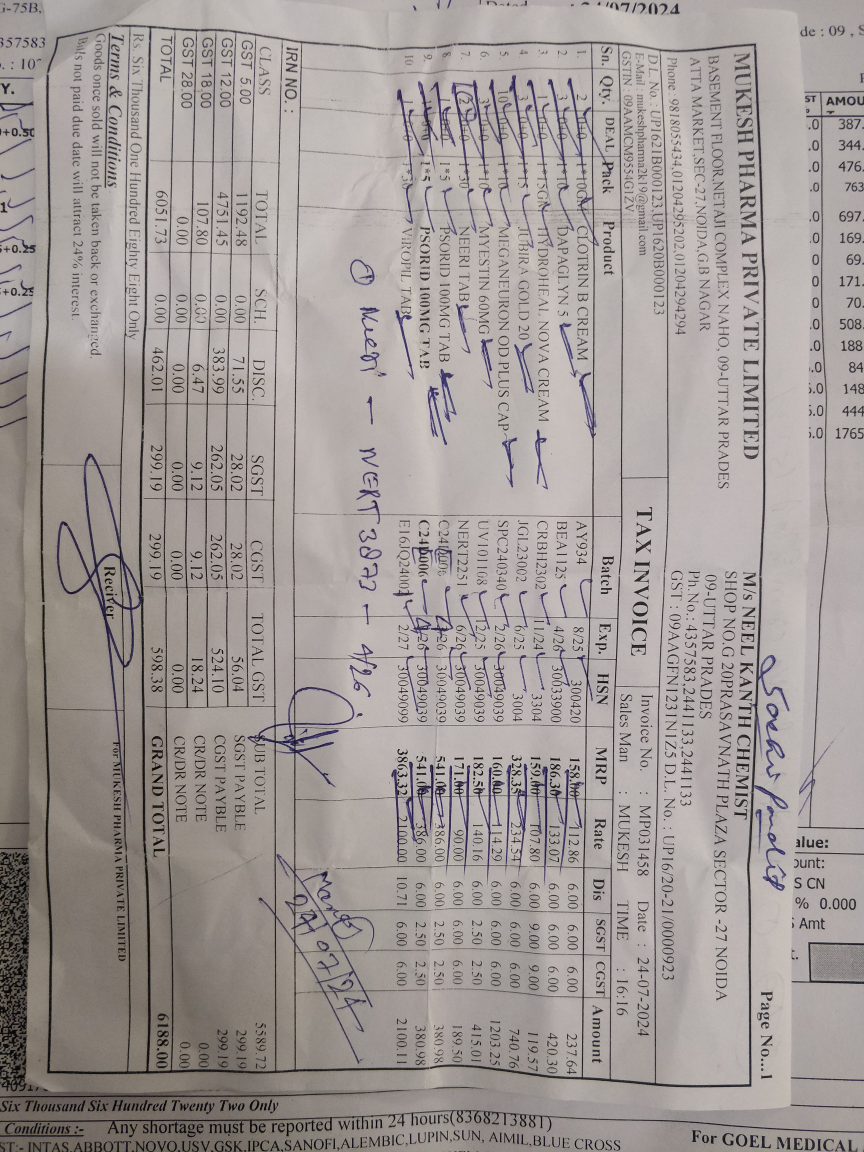 MUKESH PHARMA PRIVATE LIMITED
BASEMENT FLOOR,NETAJI COMPLEX NAHO, 09-UTTAR PRADES
ATTA MARKET,SEC-27,NOIDA,G.B NAGAR
Phone : 9818055434,01204295202,01204294294
D.L. No.: UP1621B000123,UP1620B000123
E-Mail : mukeshpharma2k19@gmail.com
GSTIN : 09AAMCM9554G1ZV
Page No...1
M/s NEEL KANTH CHEMIST
SHOP NO.G 20PRASAVNATH PLAZA SECTOR -27 NOIDA
09-UTTAR PRADES
Ph.No.: 4357583,2441133,2441133
GST : 09AAGFN1231N1Z5 D.L. No.: UP16/20-21/0000923
TAX INVOICE
Invoice No. : MP031458 Date : 24-07-2024
Sales Man : MUKESH TIME : 16:16
Sn. Qty. DEAL Pack Product Batch Exp. HSN MRP Rate Dis SGST CGST Amount
1. 2 1*10GM CLOTRIN B CREAM AY934 8/25 300420 158.00 112.86 6.00 6.00 6.00 237.64
2. 3 1*10 DAPAGLYN 5 BEA1125 4/26 30033900 186.30 133.07 6.00 6.00 6.00 420.30
3. 1 1*15GM HYDROHEAL NOVA CREAM CRBH2302 11/24 3304 159.00 107.80 6.00 9.00 9.00 119.57
4. 3 1*15 JUBIRA GOLD 20 JGL23002 6/25 3004 328.35 234.54 6.00 6.00 6.00 740.76
5. 10 1*10 MEGANEURON OD PLUS CAP SPC240340 2/26 30049039 160.00 114.29 6.00 6.00 6.00 1203.25
6. 3 1*10 MYESTIN 60MG UV101108 12/25 30049039 182.50 140.16 6.00 2.50 2.50 415.01
7. 2 1*30 NEERI TAB NERT2251 6/26 30049039 171.00 90.00 6.00 6.00 6.00 189.50
8. 1 1*5 PSORID 100MG TAB 4/26 30049039 541.00 386.00 6.00 2.50 2.50 380.98
9. 1 1*5 PSORID 100MG TAB 4/26 30049039 541.00 386.00 6.00 2.50 2.50 380.98
10. 1 1*30 VIROPIL TAB 2/27 30049099 3863.32 2100.00 10.71 6.00 6.00 2100.11
① Neeri — NERT 3873 — 4/26.
24/07/24
IRN NO. :
CLASS TOTAL SCH. DISC. SGST CGST TOTAL GST
GST 5.00 1192.48 0.00 71.55 28.02 28.02 56.04
GST 12.00 4751.45 0.00 383.99 262.05 262.05 524.10
GST 18.00 107.80 0.00 6.47 9.12 9.12 18.24
GST 28.00 0.00 0.00 0.00 0.00 0.00 0.00
TOTAL 6051.73 0.00 462.01 299.19 299.19 598.38
SUB TOTAL 5589.72
SGST PAYBLE 299.19
CGST PAYBLE 299.19
CR/DR NOTE 0.00
CR/DR NOTE 0.00
GRAND TOTAL 6188.00
Rs. Six Thousand One Hundred Eighty Eight Only
Terms & Conditions
Goods once sold will not be taken back or exchanged.
Bills not paid due date will attract 24% interest.
Reciver
For MUKESH PHARMA PRIVATE LIMITED
G-75B,
357583
/07/2024
de : 09 ,
AMOU
387.
344.
476.
763
697.
169.
69.
171.
70.
508.
188
84
148
444
1765
alue:
ount:
S CN
% 0.000
Amt
Six Thousand Six Hundred Twenty Two Only
Conditions :- Any shortage must be reported within 24 hours(8368213881)
ST:- INTAS,ABBOTT,NOVO,USV,GSK,IPCA,SANOFI,ALEMBIC,LUPIN,SUN, AIMIL,BLUE CROSS
For GOEL MEDICAL